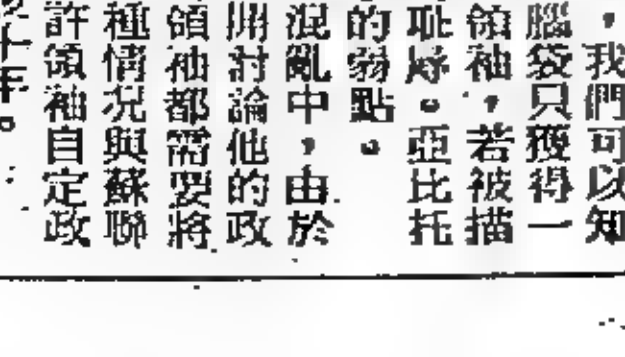 ，我們可以知
腦袋只獲得一
領袖，若被描
恥辱。亞比托
的弱點。
混亂中，由於
開討論他的政
領袖都需要將
種情況與蘇聯
許領袖自定政
十年。